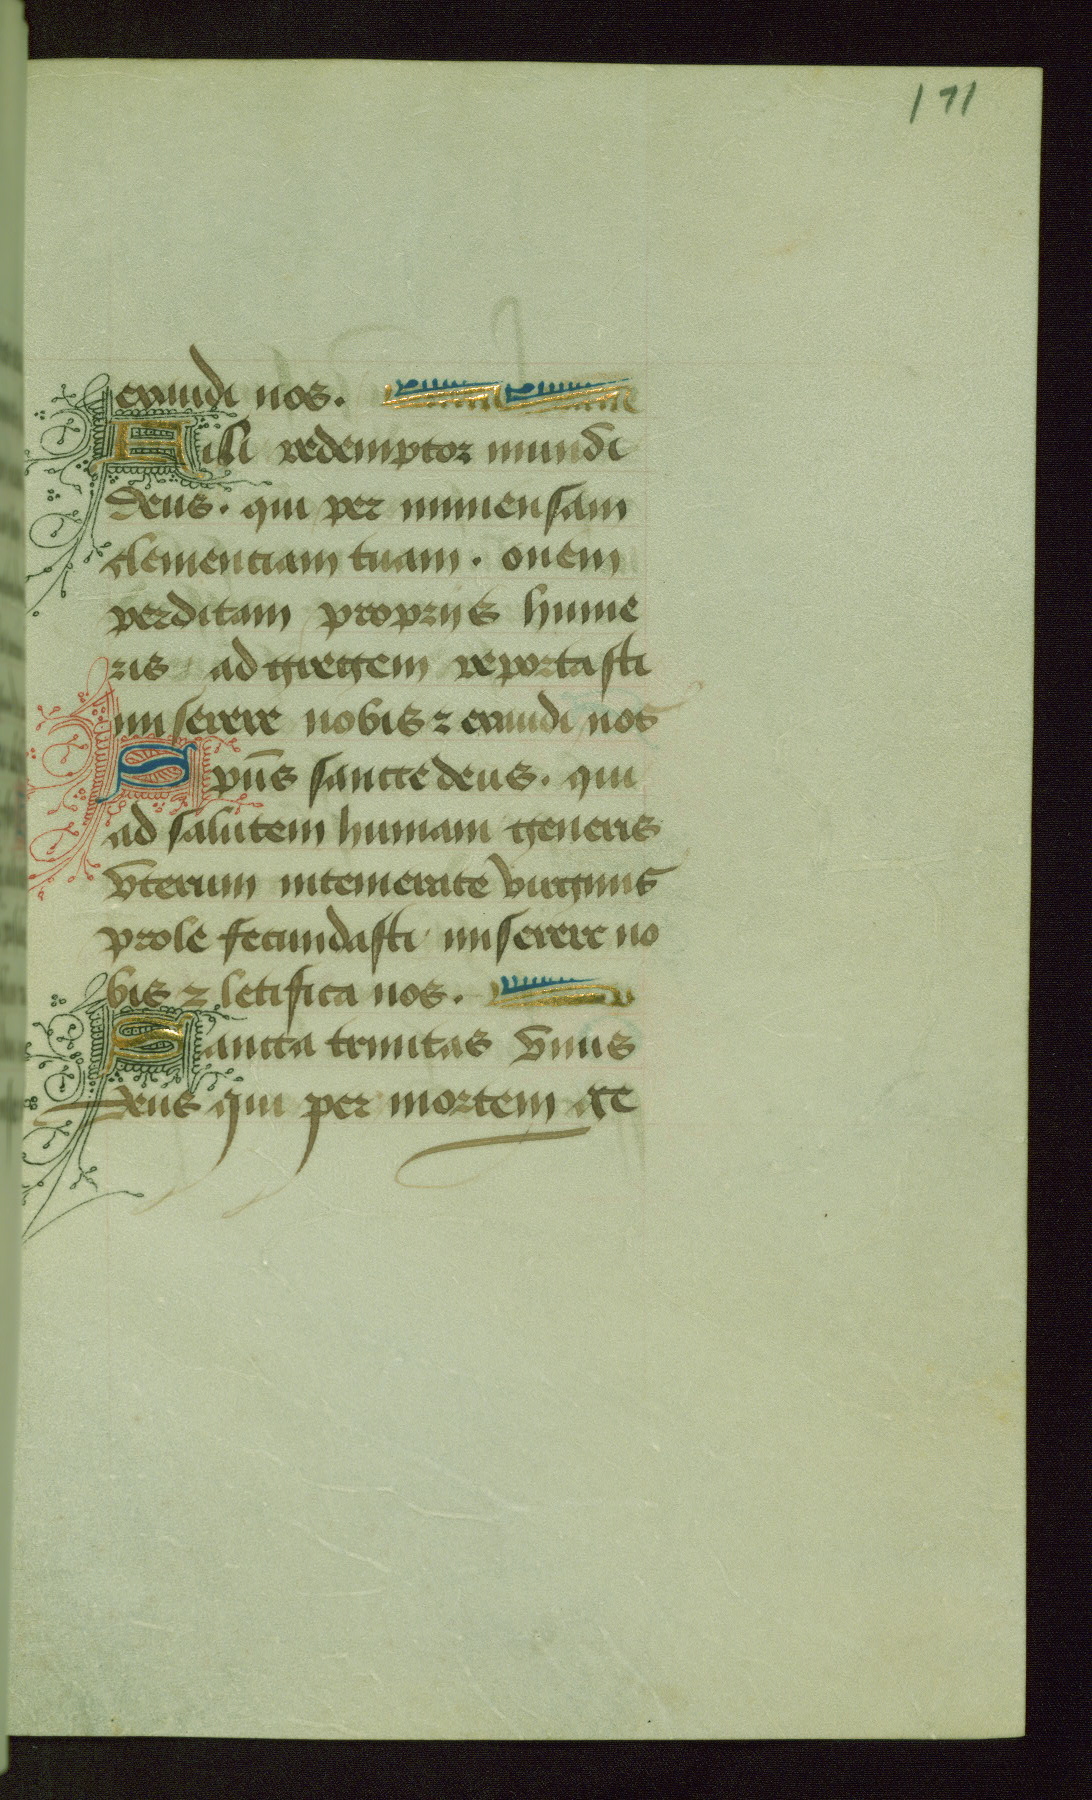 171
exaudi nos.
Fili redemptor mundi
deus. qui per immensam
clementiam tuam. ouem
perditam proprijs hume
ris ad gregem reportasti
miserere nobis ⁊ exaudi nos
Spūs sancte deus. qui
ad salutem humani generis
vterum intemerate virginis
prole fecundasti miserere no
bis ⁊ letifica nos.
Sancta trinitas vnus
deus qui per mortem